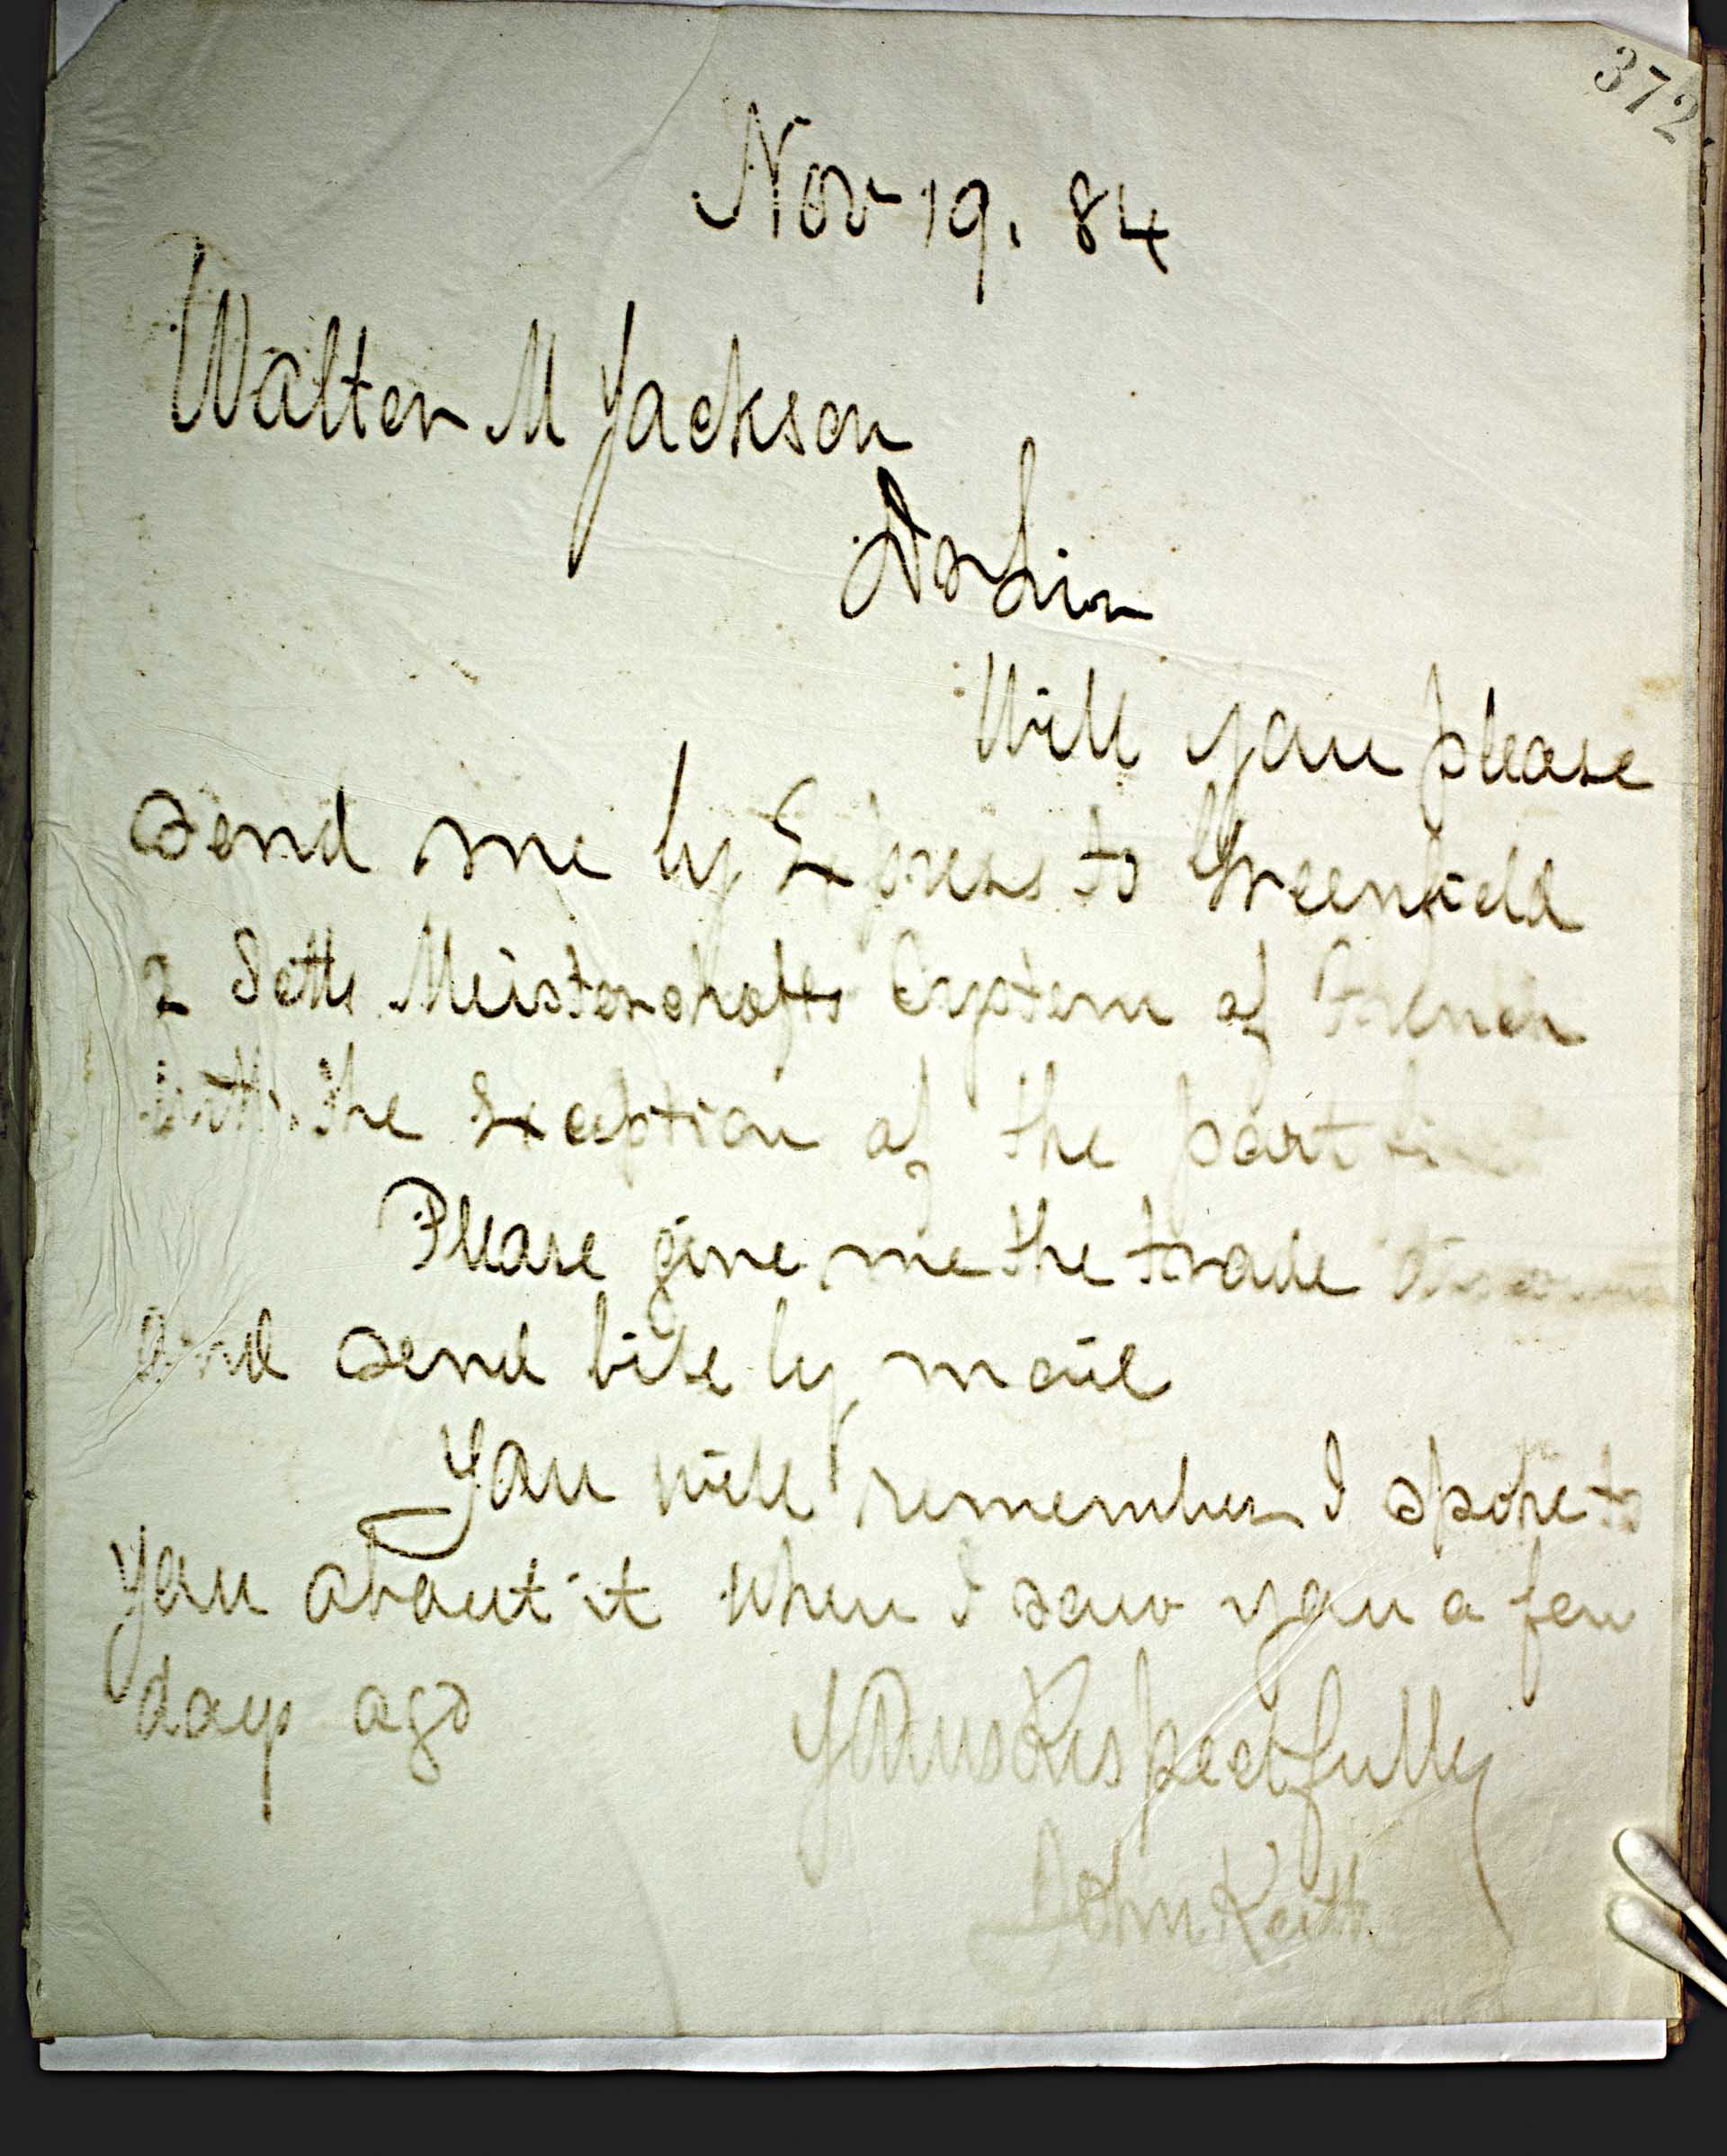 372
Nov 19. 84
Walter M Jackson
Dr Sir
Will you please
send me by Express to Greenfield
2 Setts Meisterchafts System of French
with the Exception of the part first
Please give me the trade discount
and send bill by mail
You will remember I spoke to
you about it when I saw you a few
days ago
Yours Respectfully
John Keith